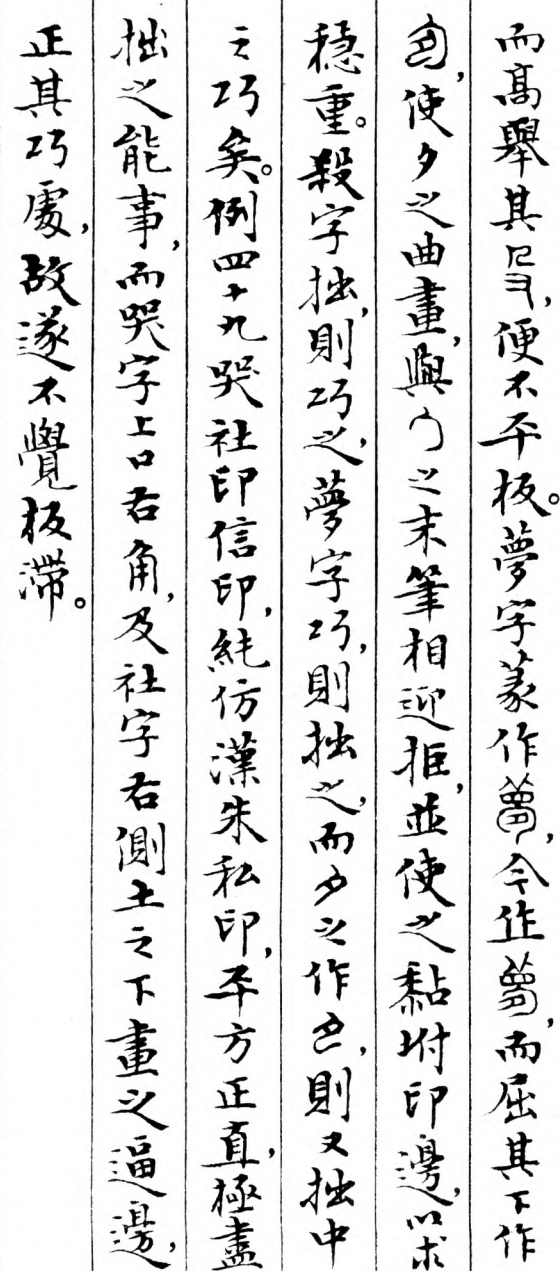 而高舉其，便不平板。夢字篆作，今作，而屈其下作
，使夕之曲畫，與勹之末筆相迎拒，並使之黏坿印邊，以求
穩重。殺字拙，則巧之，夢字巧，則拙之，而夕之作，則又拙中
之巧矣。例四十九哭社印信印，純仿漢朱私印，平方正直，極盡
拙之能事，而哭字上口右角，及社字右側土之下畫之逼邊，
正其巧處，故遂不覺板滯。